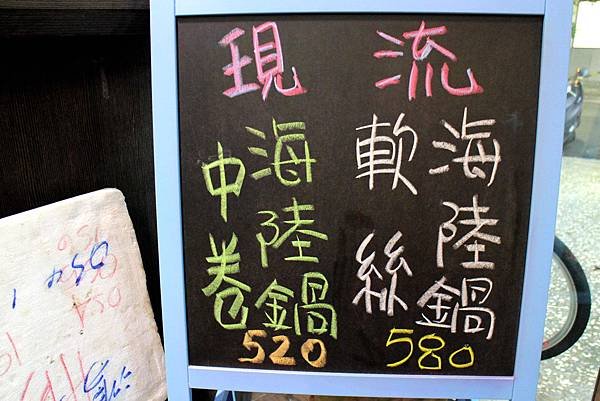 現流
中卷
海陸鍋
520
軟絲
海陸鍋
580